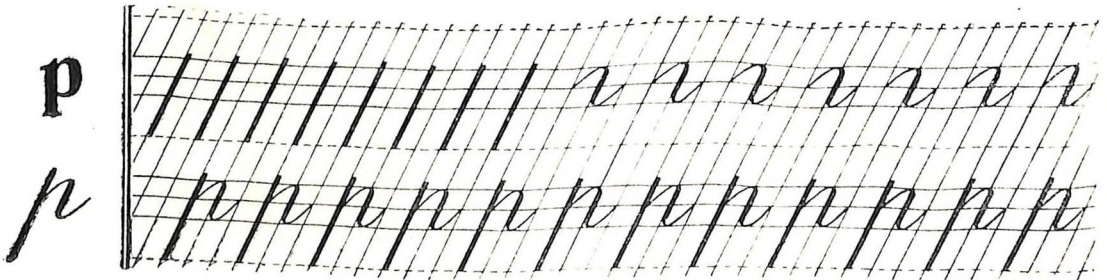 p
p p p p p p p p p p p p p